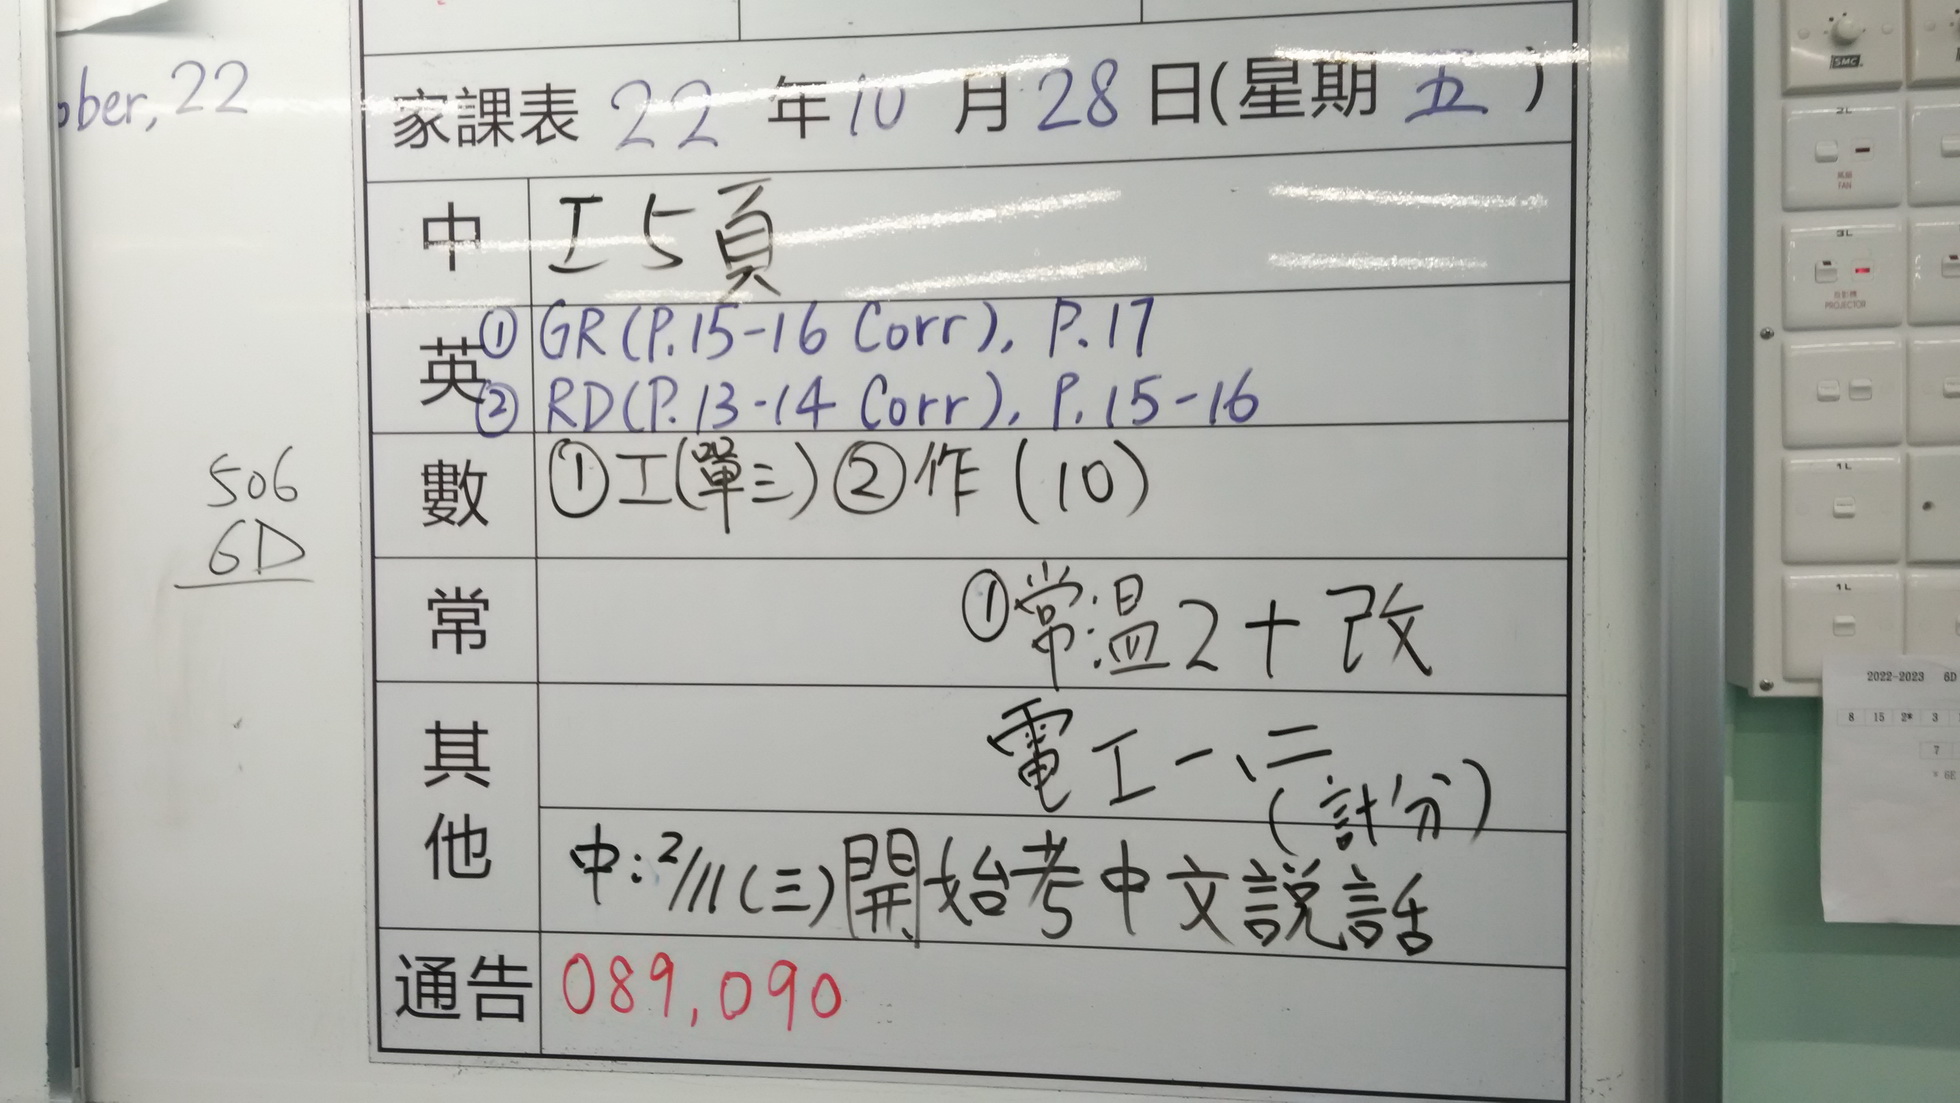 ober, 22
家課表 22 年 10 月 28 日(星期 五 )
中 工 5 頁
英 ① GR (P.15-16 Corr), P.17
② RD (P.13-14 Corr), P.15-16
數 ①工(單三) ②作 (10)
常 ①常:溫2+改
其他 電工一、二
(計分)
中:2/11(三)開始考中文說話
通告 089, 090
506
6D
SMC
2L
風扇
FAN
3L
投影機
PROJECTOR
1L
1L
2022-2023 6D
8 15 2* 3
7
* 6E